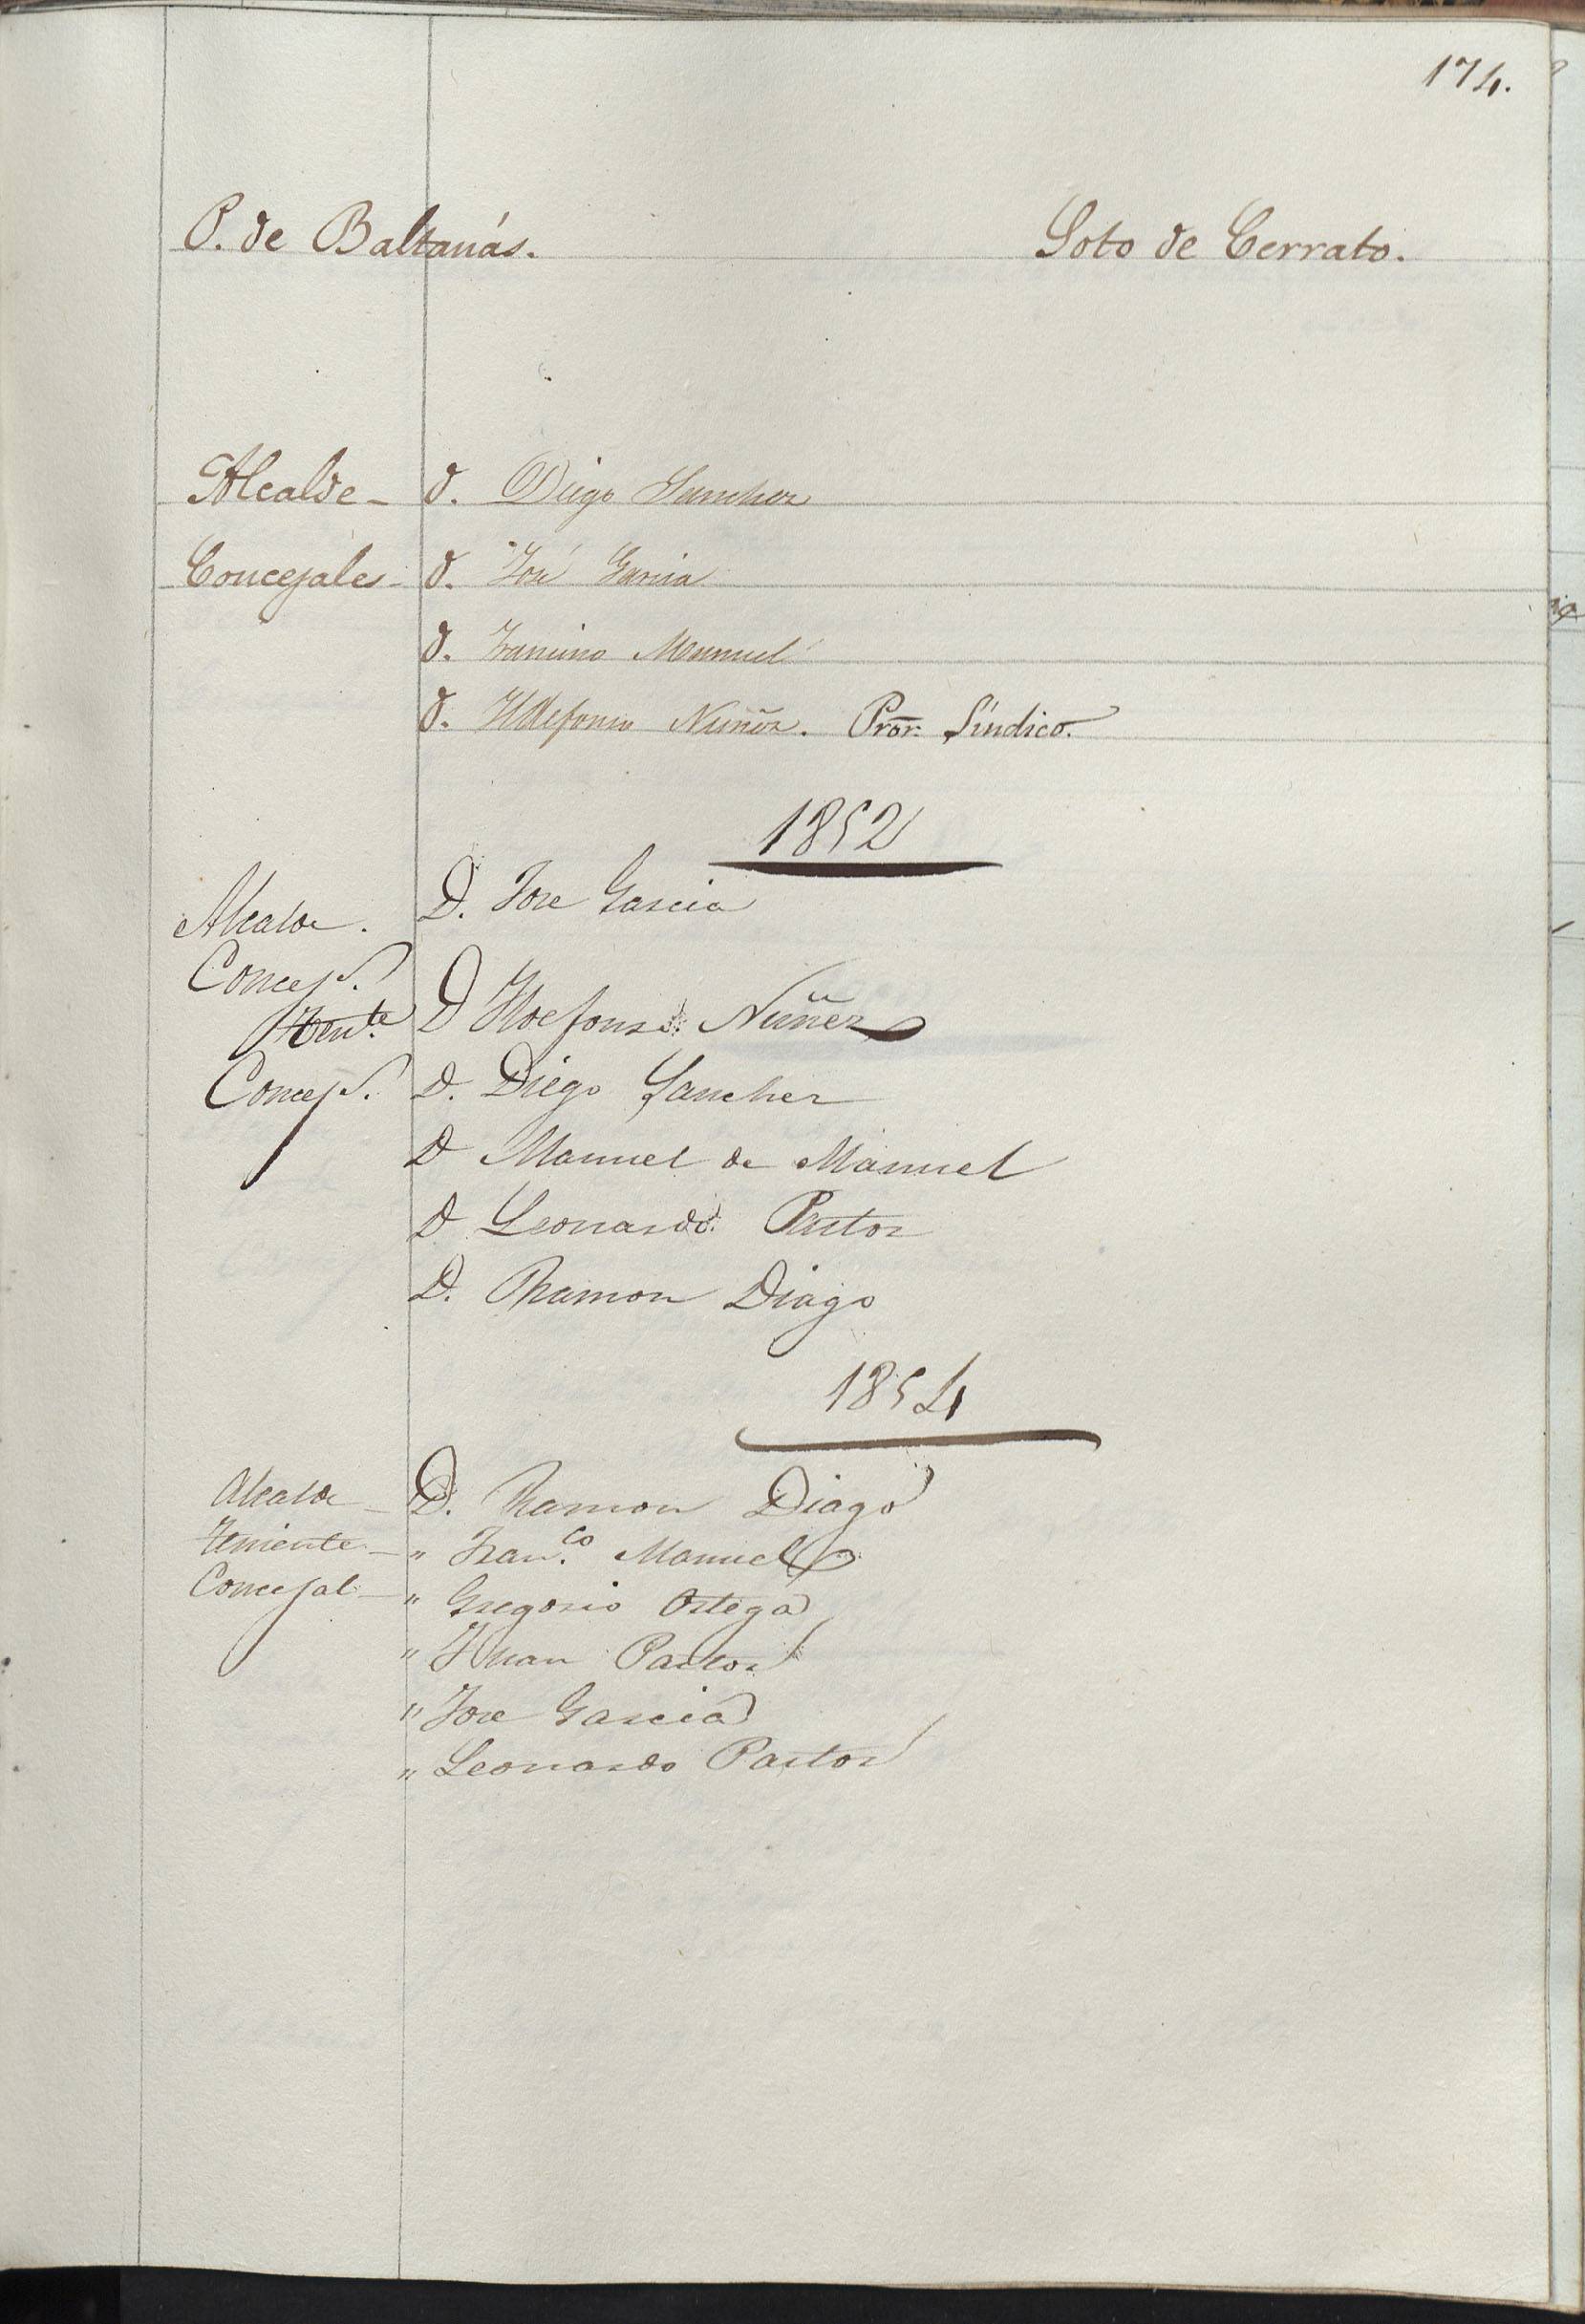 174.
P. de Baltanás. Soto de Cerrato.
Alcalde - D. Diego Sanchez
Concejales - D. José Garcia
D. Francisco Manuel
D. Ildefonso Nuñez. Pror. Síndico.
1852
Alcalde. D. Jose Garcia
Concejs.
Tente. D Ildefonso Nuñez
Concejs. D. Diego Sanchez
D Manuel de Manuel
D Leonardo Pastor
D. Ramon Diago
1854
Alcalde - D. Ramon Diago
Teniente - " Franco. Manuel
Concejal - " Gregorio Ortega
" Juan Pastor
" Jose Garcia
" Leonardo Pastor